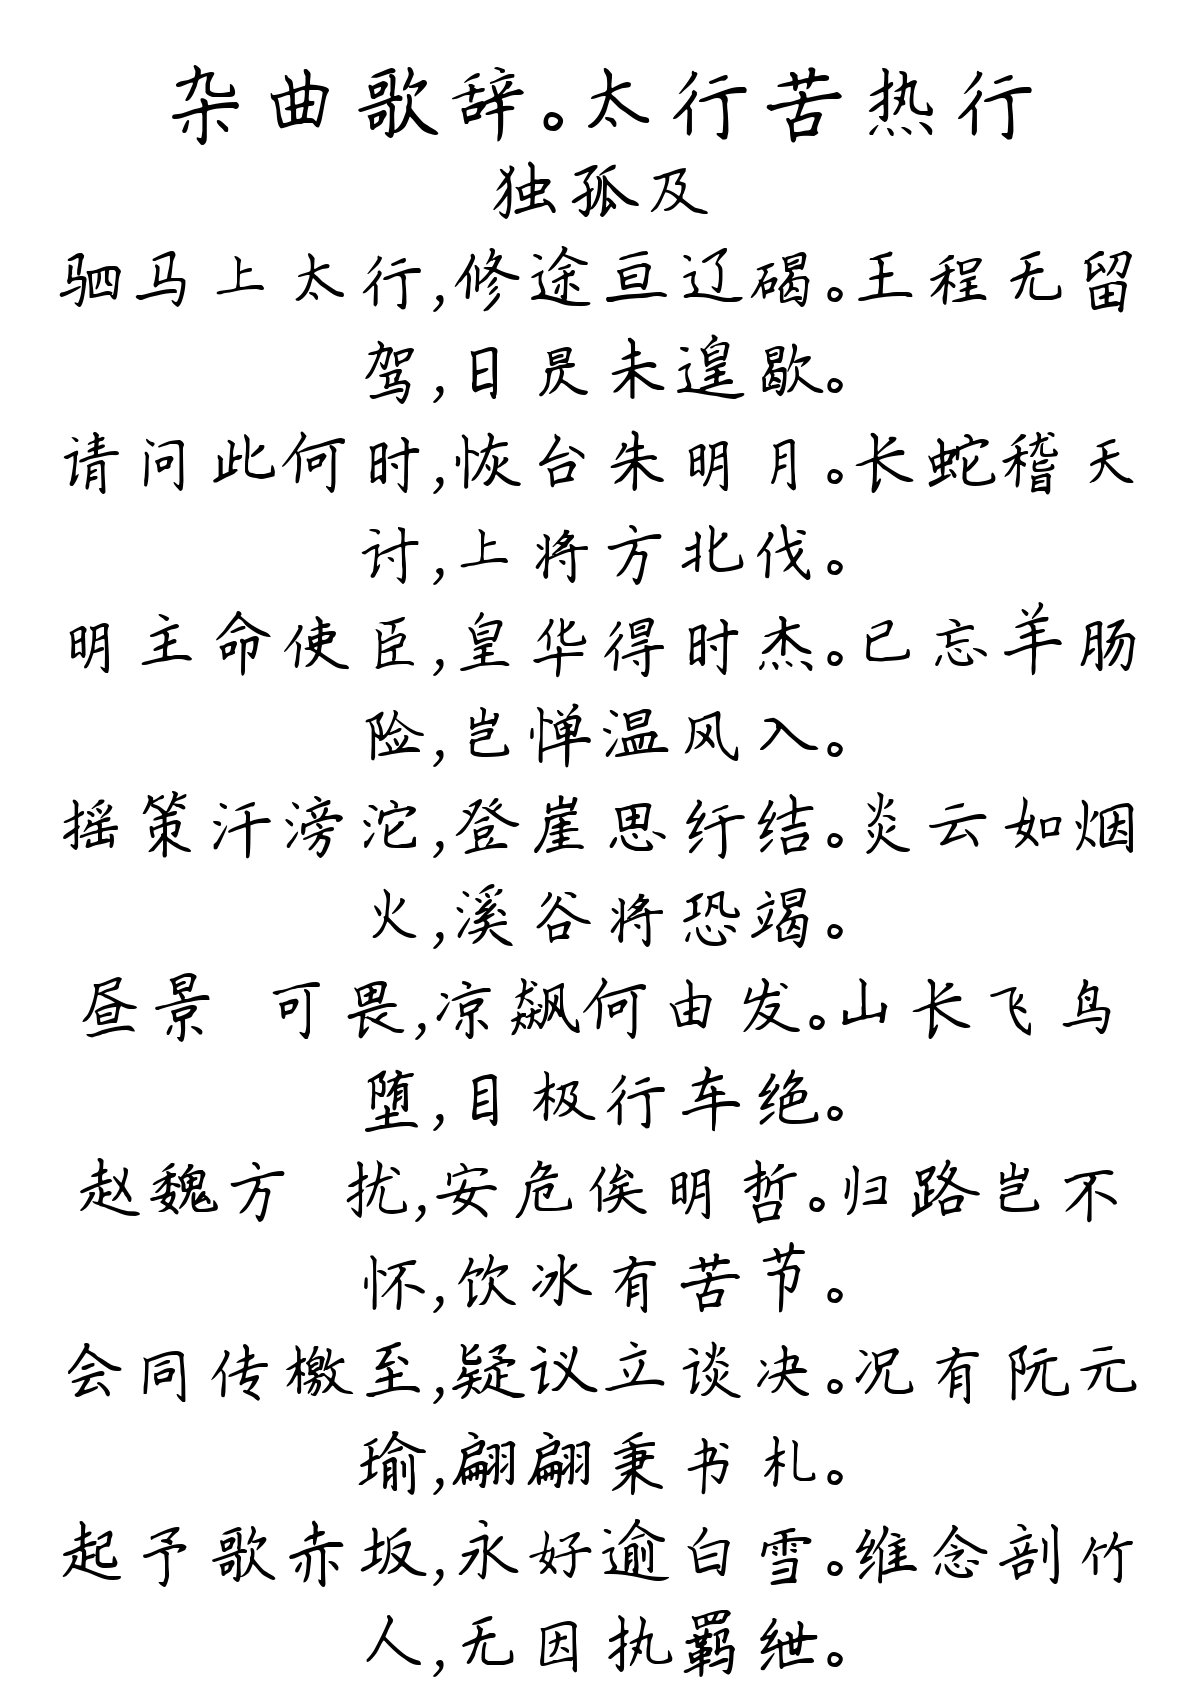 杂曲歌辞。太行苦热行
独孤及
驷马上太行,修途亘辽碣。王程无留
驾,日昃未遑歇。
请问此何时,恢台朱明月。长蛇稽天
讨,上将方北伐。
明主命使臣,皇华得时杰。已忘羊肠
险,岂惮温风入。
摇策汗滂沱,登崖思纡结。炎云如烟
火,溪谷将恐竭。
昼景 可畏,凉飙何由发。山长飞鸟
堕,目极行车绝。
赵魏方 扰,安危俟明哲。归路岂不
怀,饮冰有苦节。
会同传檄至,疑议立谈决。况有阮元
瑜,翩翩秉书札。
起予歌赤坂,永好逾白雪。维念剖竹
人,无因执羁绁。